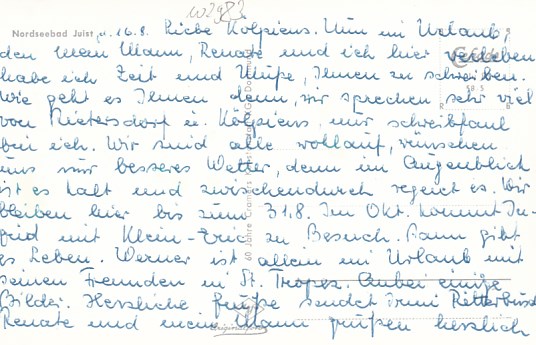 Nordseebad Juist, 16.8. Liebe Kölpiens. Nun im Urlaub,
den mein Mann, Renate und ich hier verleben
habe ich Zeit und Muße, Ihnen zu schreiben.
Wie geht es Ihnen denn, wir sprechen sehr viel
von Rietersdorf u. Kölpiens, nur schreibfaul
bin ich. Wir sind alle wohlauf, wünschen
uns nur besseres Wetter, denn im Augenblick
ist es kalt und zwischendurch regnet es. Wir
bleiben hier bis zum 31.8. Im Okt. kommt In-
grid mit Klein-Eric zu Besuch. Dann gibt
es Leben. Werner ist allein im Urlaub mit
seinen Freunden in St. Tropez. Anbei einige
Bilder. Herzliche Grüße sendet Irmi Ritterbusch
Renate und mein Mann grüßen herzlich
60 Jahre Cramers